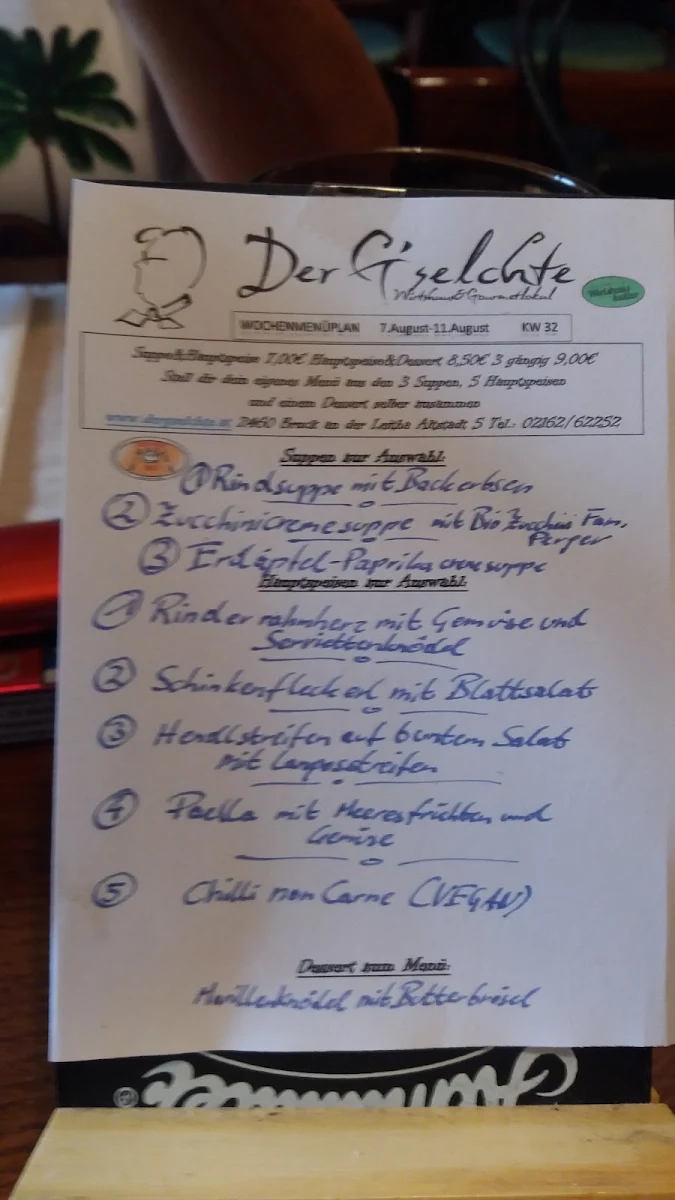 Der G'selchte
Wirtshaus&Gourmetlokal
WOCHENMENÜPLAN 7.August-11.August KW 32
Suppe&Hauptspeise 7,00€ Hauptspeise&Dessert 8,50€ 3 gängig 9,00€
Stell dir dein eigenes Menü aus den 3 Suppen, 5 Hauptspeisen
und einem Dessert selber zusammen
www.dergselchte.at, 2460 Bruck an der Leitha Altstadt 5 Tel.: 02162/62252
Suppen zur Auswahl:
① Rindsuppe mit Backerbsen
② Zucchinicremesuppe mit Bio Zucchini Fam.
Perger
③ Erdäpfel-Paprikacremesuppe
Hauptspeisen zur Auswahl:
① Rinderrahmherz mit Gemüse und
Serviettenknödel
② Schinkenfleckerl mit Blattsalat
③ Hendlstreifen auf buntem Salat
mit
④ Paella mit Meeresfrüchten und
Gemüse
⑤ Chilli non Carne (VEGAN)
Dessert zum Menü:
Marillenknödel mit Butterbrösel